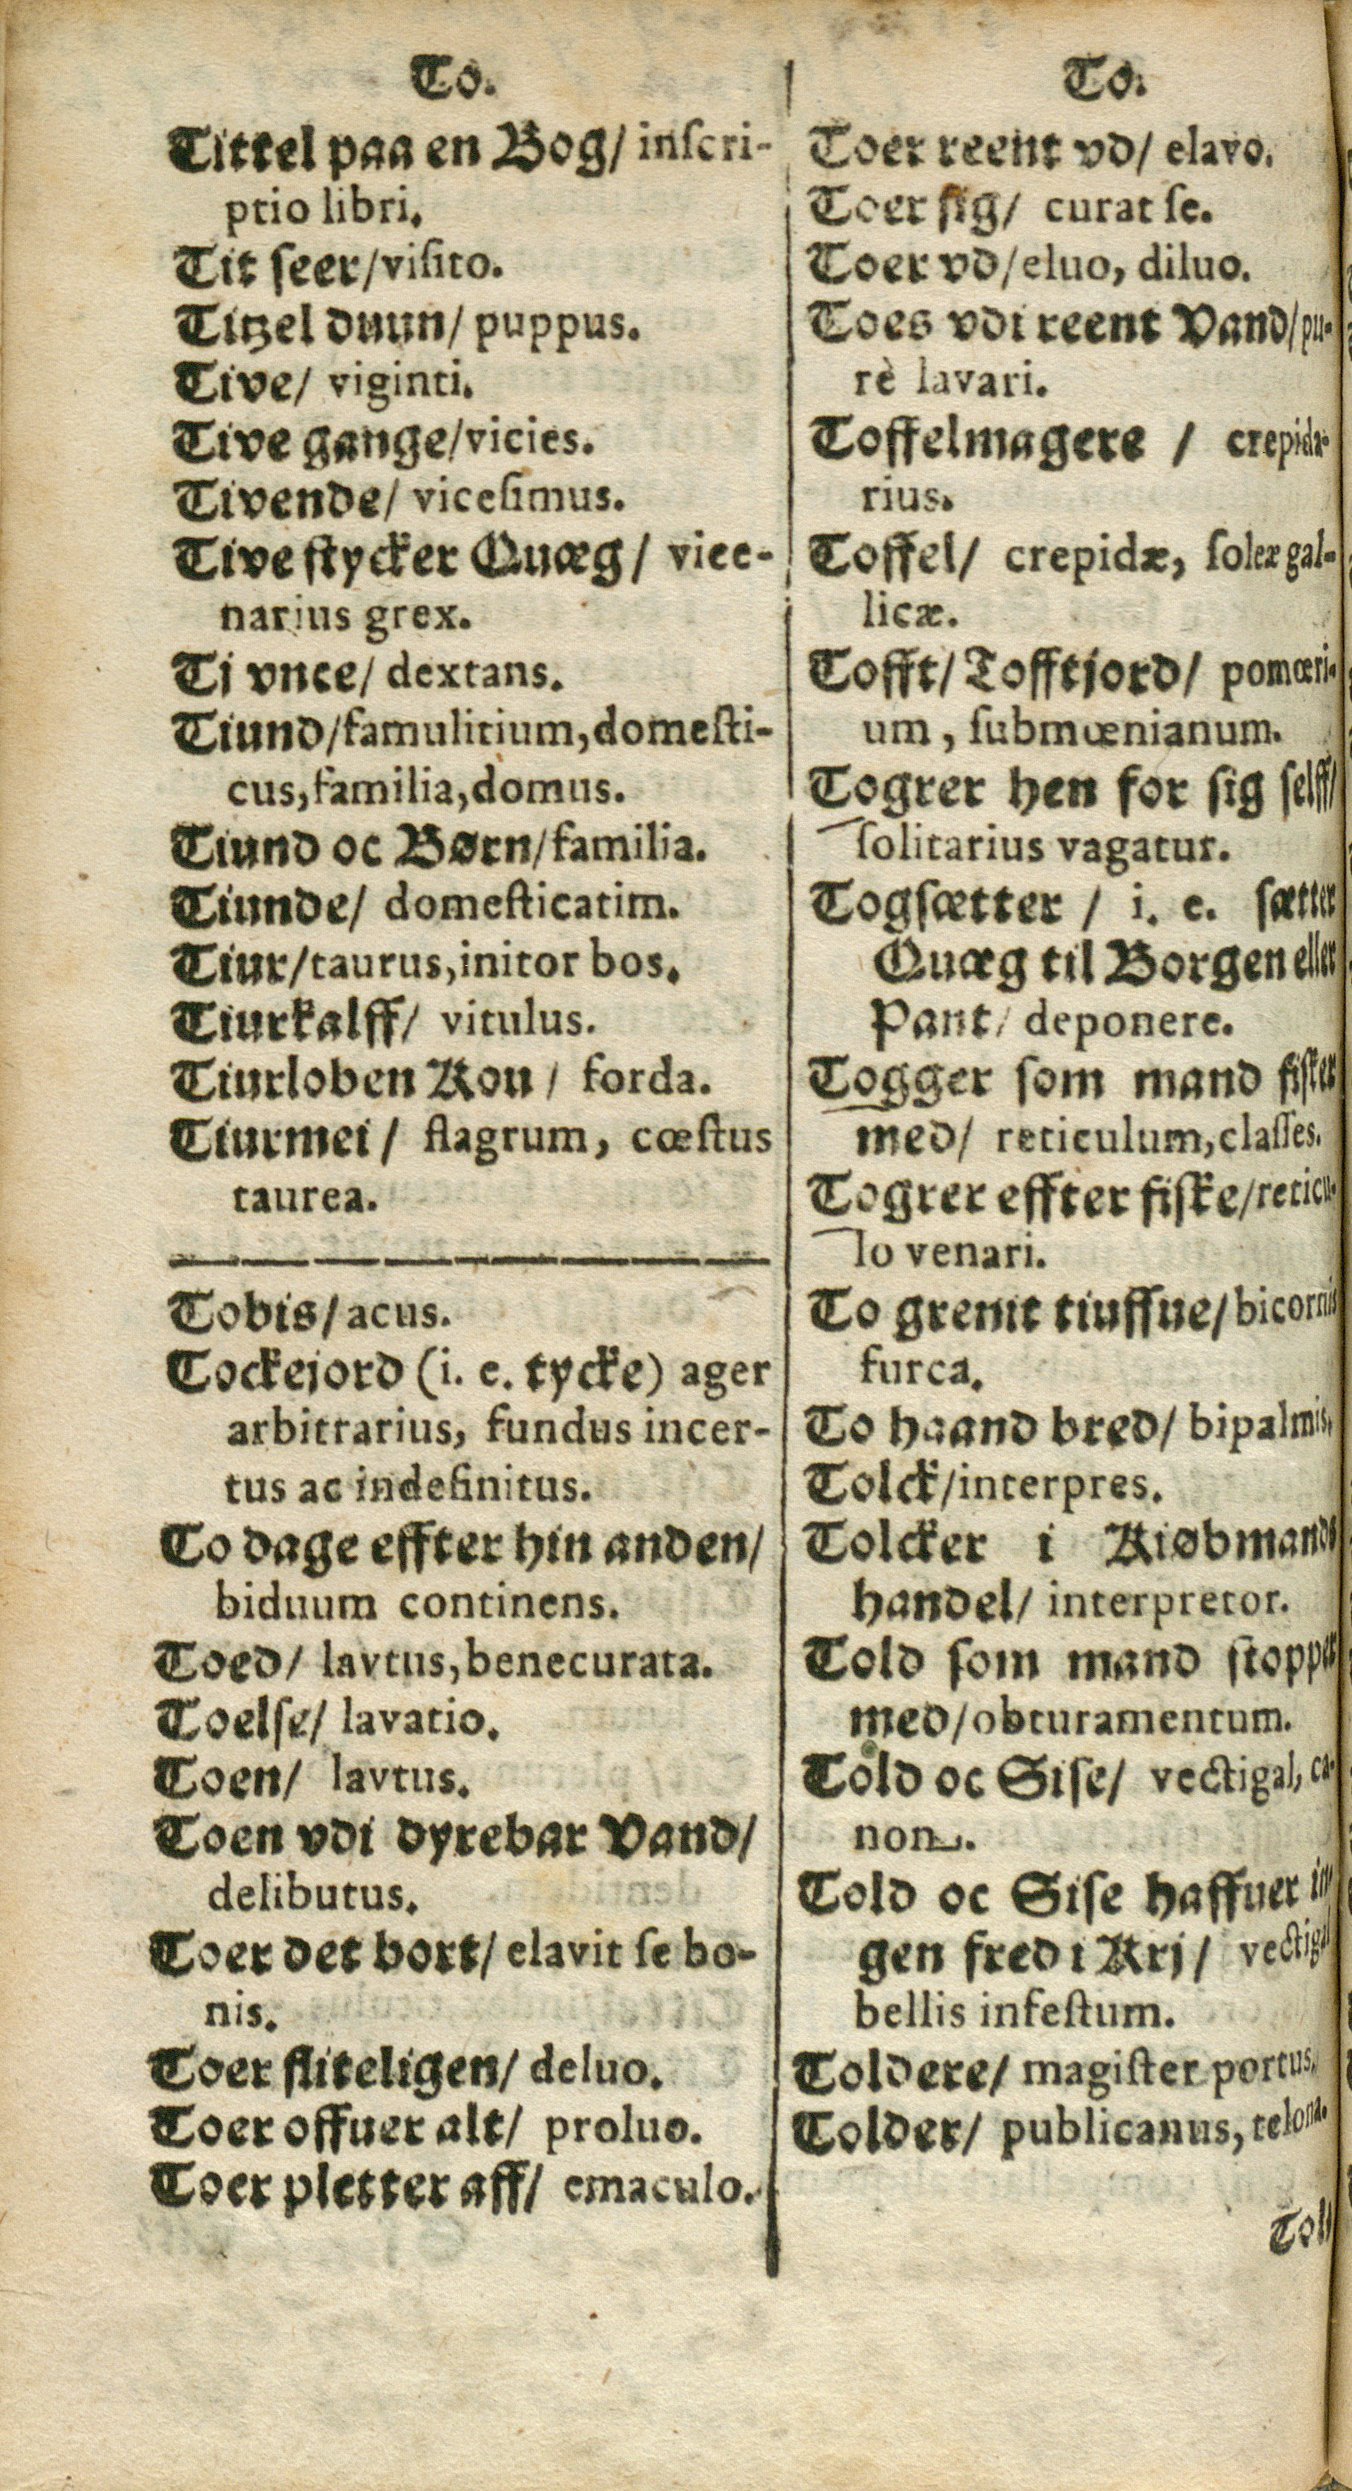 To.
Tittel paa en Bog/ inſcri-
ptio libri.
Tit ſeer/viſito.
Titzel duun/ puppus.
Tive/ viginti.
Tive gange/vicies.
Tivende/ viceſimus.
Tive ſtycker Quæg/ vice-
narius grex.
Tj vnce/ dextans.
Tiund/famulitium,domeſti-
cus,familia,domus.
Tiund oc Børn/familia.
Tiunde/ domeſticatim.
Tiur/taurus,initor bos.
Tiurkalff/ vitulus.
Tiurloben Kou/ forda.
Tiurmei/ flagrum, cœſtus
taurea.
Tobis/acus.
Tockejord (i. e. tycke) ager
arbitrarius, fundus incer-
tus ac indefinitus.
To dage effter hin anden/
biduum continens.
Toed/ lavtus,benecurata.
Toelſe/ lavatio.
Toen/ lavtus.
Toen vdi dyrebar Vand/
delibutus.
Toer det bort/ elavit ſe bo-
nis.
Toer fliteligen/ deluo.
Toer offuer alt/ proluo.
Toer pletter aff/ emaculo.
To.
Toer reent vd/ elavo.
Toer ſig/ curat ſe.
Toer vd/eluo, diluo.
Toes vdi reent Vand/pu-
rè lavari.
Toffelmagere / crepida-
rius.
Toffel/ crepidæ, ſoleæ gal-
licæ.
Tofft/ Tofftjord/ pomœri-
um, ſubmœnianum.
Togrer hen for ſig ſelff/
ſolitarius vagatur.
Togſætter / i. e. ſætter
Quæg til Borgen eller
Pant/ deponere.
Togger ſom mand fiſker
med/ reticulum,claſſes.
Togrer effter fiſke/reticu-
lo venari.
To grenit tiuffue/bicornis
furca.
To haand bred/ bipalmis.
Tolck/interpres.
Tolcker i Kiøbmands
handel/ interpretor.
Told ſom mand ſtopper
med/obturamentum.
Told oc Siſe/ vectigal, ca-
non.
Told oc Siſe haffuer in-
gen fred i Krj/ vectigal
bellis infeſtum.
Toldere/ magiſter portus.
Tolder/ publicanus, telona.
Toll